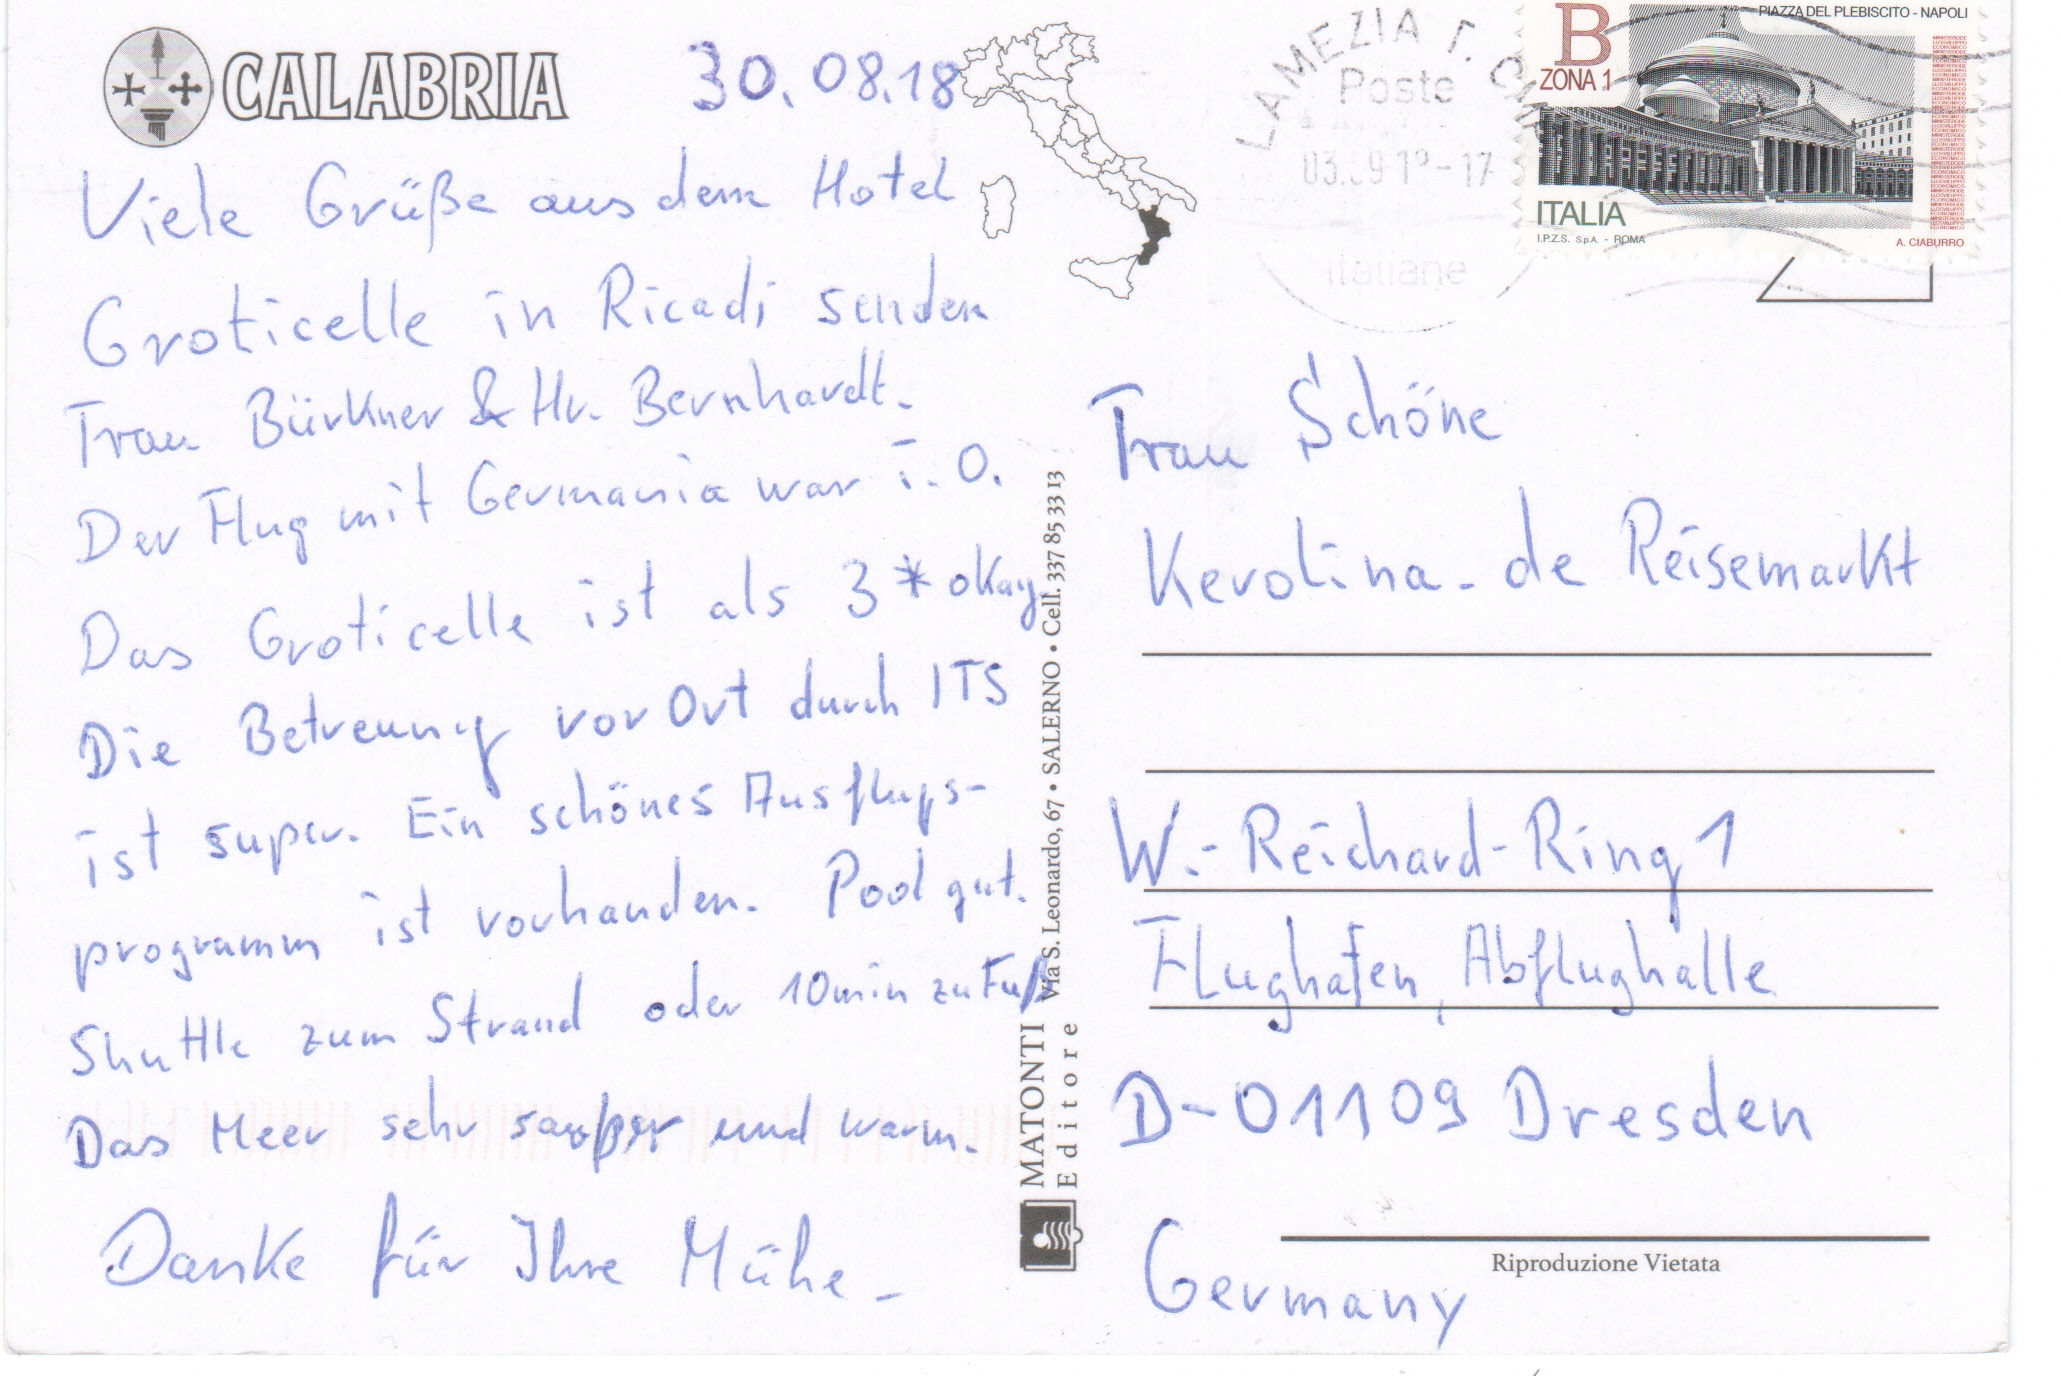 CALABRIA
30.08.18
Viele Grüße aus dem Hotel
Groticelle in Ricadi senden
Frau Bürkner & Hr. Bernhardt.
Der Flug mit Germania war i.O.
Das Groticelle ist als 3* okay
Die Betreuung vor Ort durch ITS
ist super. Ein schönes Ausflugs-
programm ist vorhanden. Pool gut.
Shuttle zum Strand oder 10min zu Fuß
Das Meer sehr sauber und warm.
Danke für Ihre Mühe.
MATONTI
Editore
Via S. Leonardo, 67 • SALERNO • Cell. 337 85 33 13
LAMEZIA T.
Poste
Italiane
B
ZONA 1
PIAZZA DEL PLEBISCITO - NAPOLI
ITALIA
I.P.Z.S. S.p.A. - ROMA
A. CIABURRO
Frau Schöne
Kerolina-de Reisemarkt
W.-Reichard-Ring 1
Flughafen, Abflughalle
D-01109 Dresden
Germany
Riproduzione Vietata